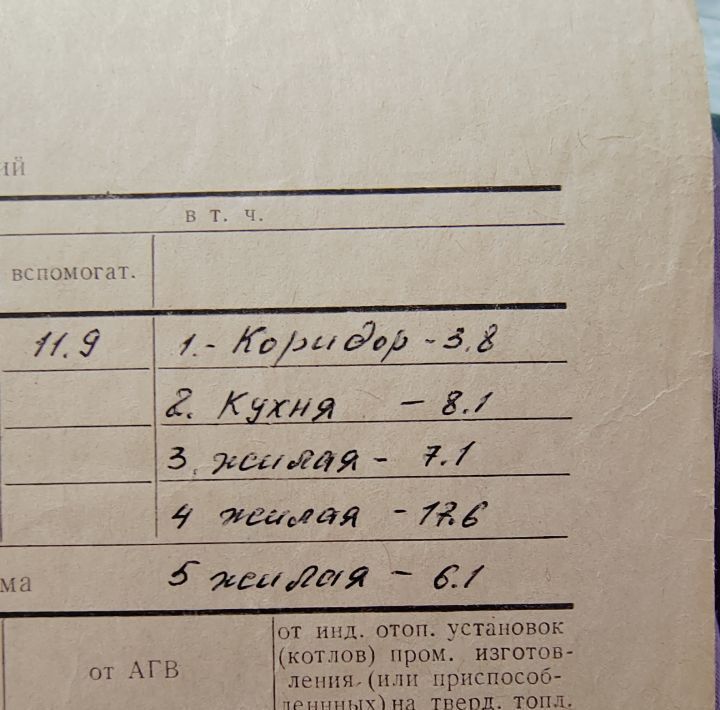 ий
в т. ч.
вспомогат.
11.9 1.- Коридор - 3.8
2. Кухня - 8.1
3. жилая - 7.1
4 жилая - 17.6
ма 5 жилая - 6.1
от АГВ
от инд. отоп. установок
(котлов) пром. изготов-
ления (или приспособ-
леннных) на тверд. топл.